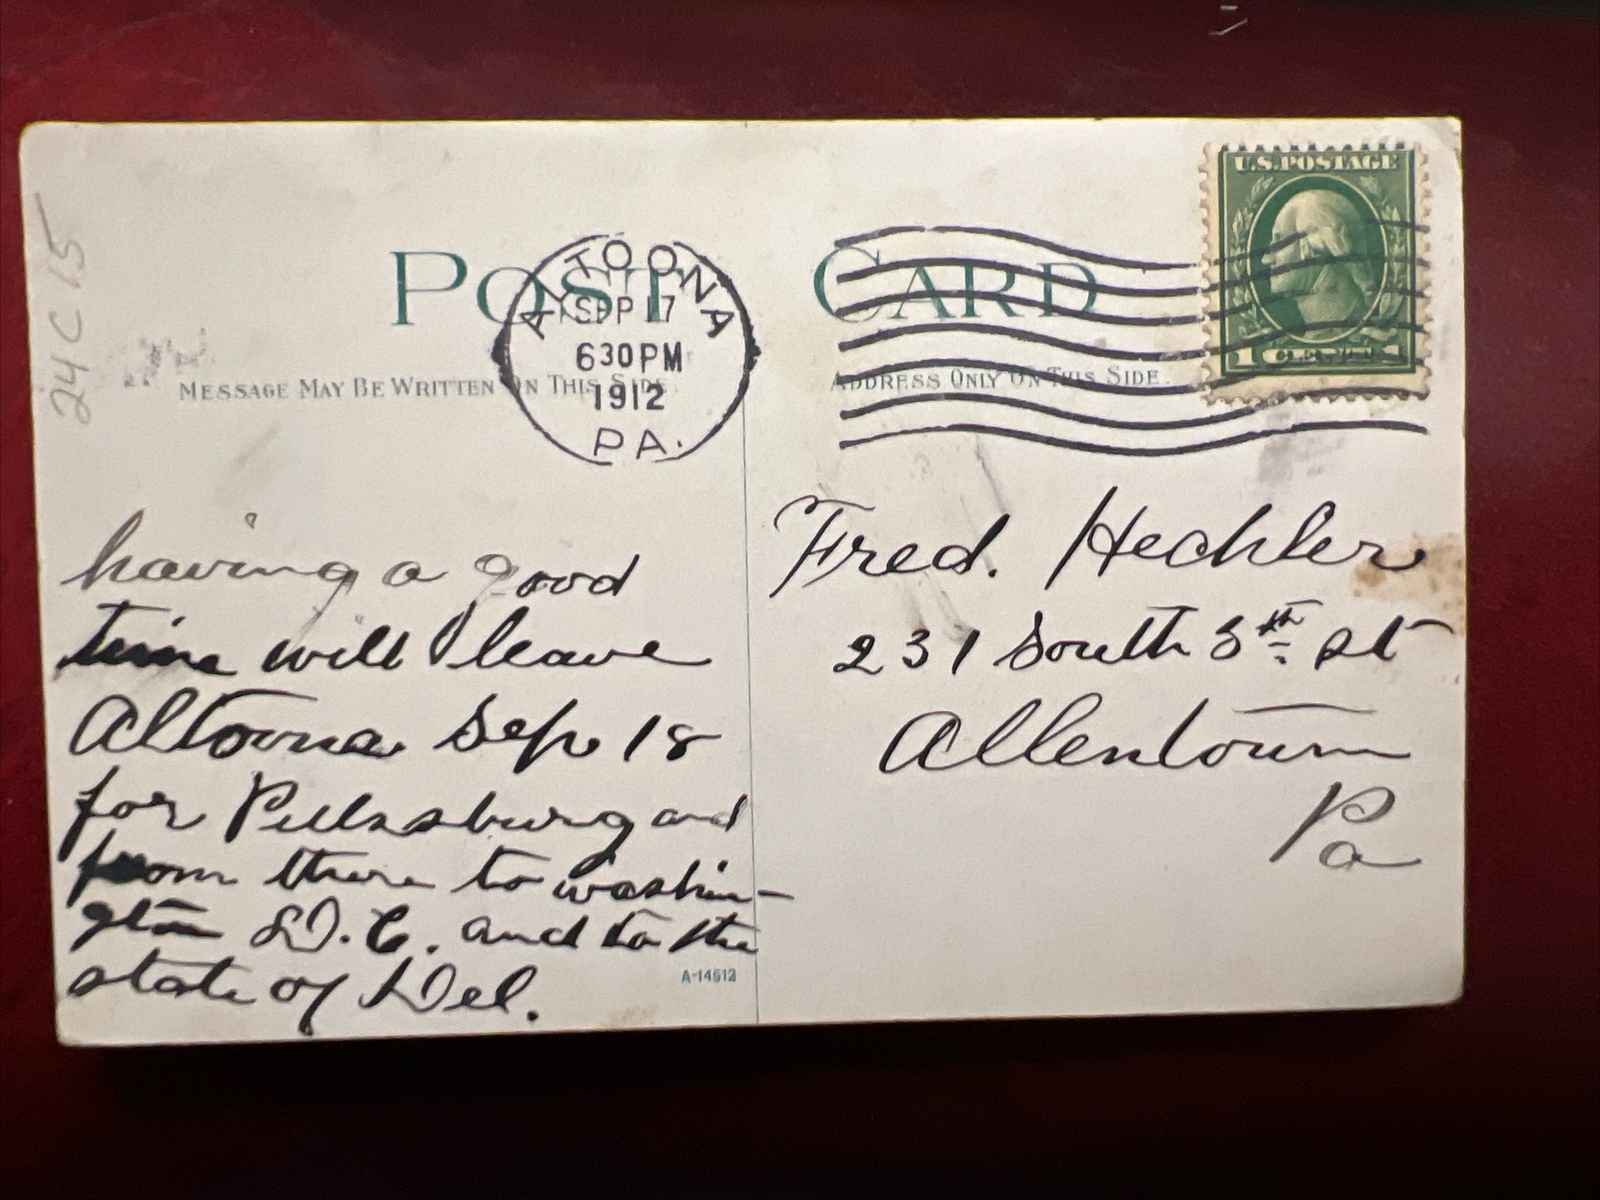 24C15
POST CARD
ALTOONA
SEP 17
630PM
1912
PA.
U.S. POSTAGE
1 CENT 1
MESSAGE MAY BE WRITTEN ON THIS SIDE
ADDRESS ONLY ON THIS SIDE.
having a good
time will leave
Altoona Sep 18
for Pittssburg and
from there to washin-
gton D.C. and to the
state of Del.
A-14512
Fred. Hechler
231 South 5th st
Allentown
Pa